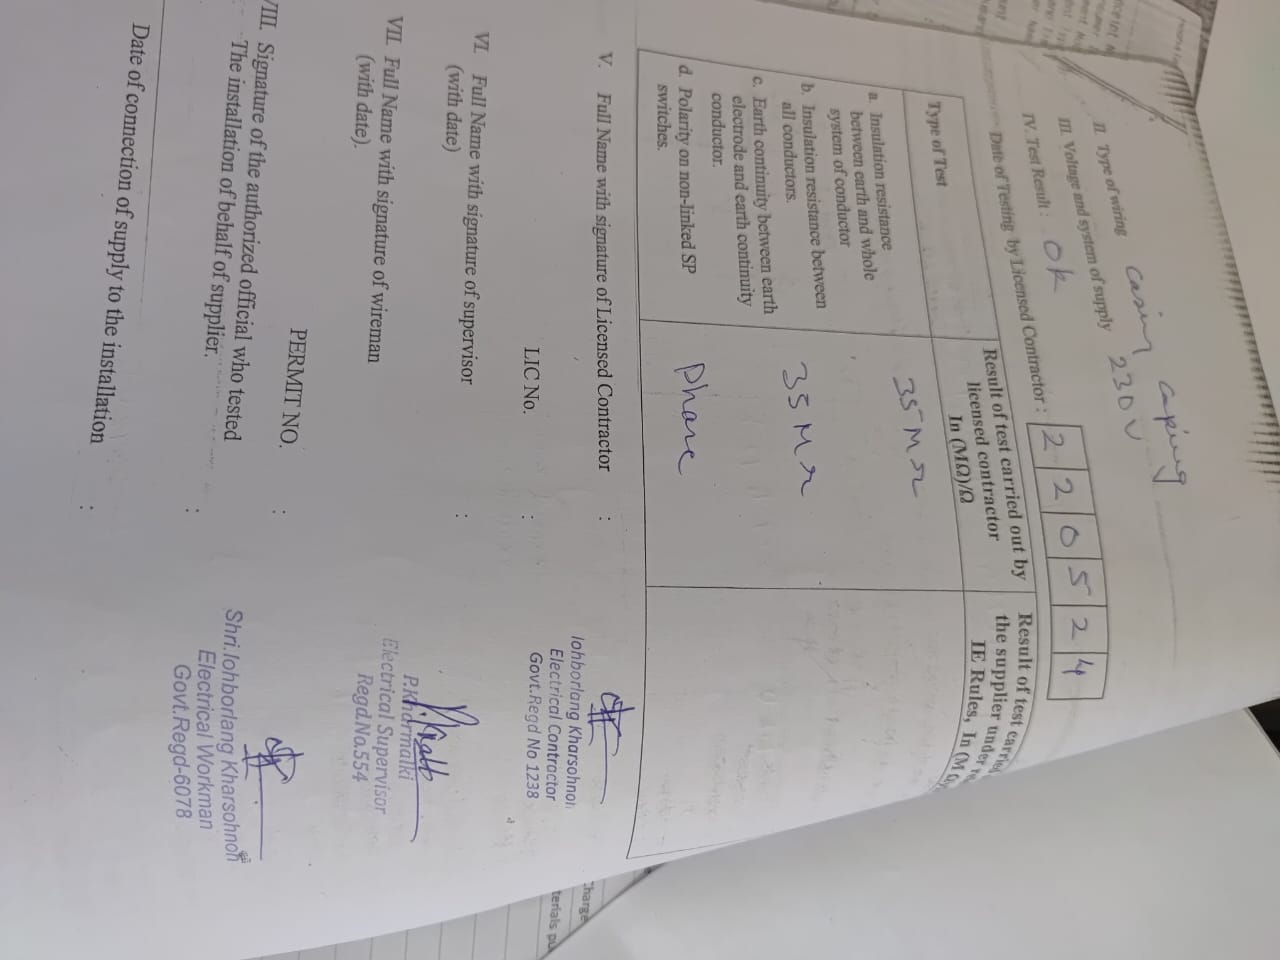 II. Type of wiring casin caping
III. Voltage and system of supply 230 V
IV. Test Result : Ok
Date of Testing by Licensed Contractor : 2 2 0 5 2 4
Type of Test
Result of test carried out by
licensed contractor
In (MΩ)/Ω
Result of test carried
the supplier under
IE Rules, In (M Ω
a. Insulation resistance
between earth and whole
system of conductor
35 M Ω
b. Insulation resistance between
all conductors.
35 M Ω
c. Earth continuity between earth
electrode and earth continuity
conductor.
d. Polarity on non-linked SP
switches.
Phase
V. Full Name with signature of Licensed Contractor :
Iohborlang Kharsohnoh
Electrical Contractor
LIC No. :
Govt.Regd No 1238
VI. Full Name with signature of supervisor :
(with date)
P.Kharmalki
Electrical Supervisor
Regd.No.554
VII. Full Name with signature of wireman
(with date).
PERMIT NO. :
Shri.Iohborlang Kharsohnoh
Electrical Workman
Govt.Regd-6078
VIII. Signature of the authorized official who tested
The installation of behalf of supplier. :
Date of connection of supply to the installation :
Charge
terials pu